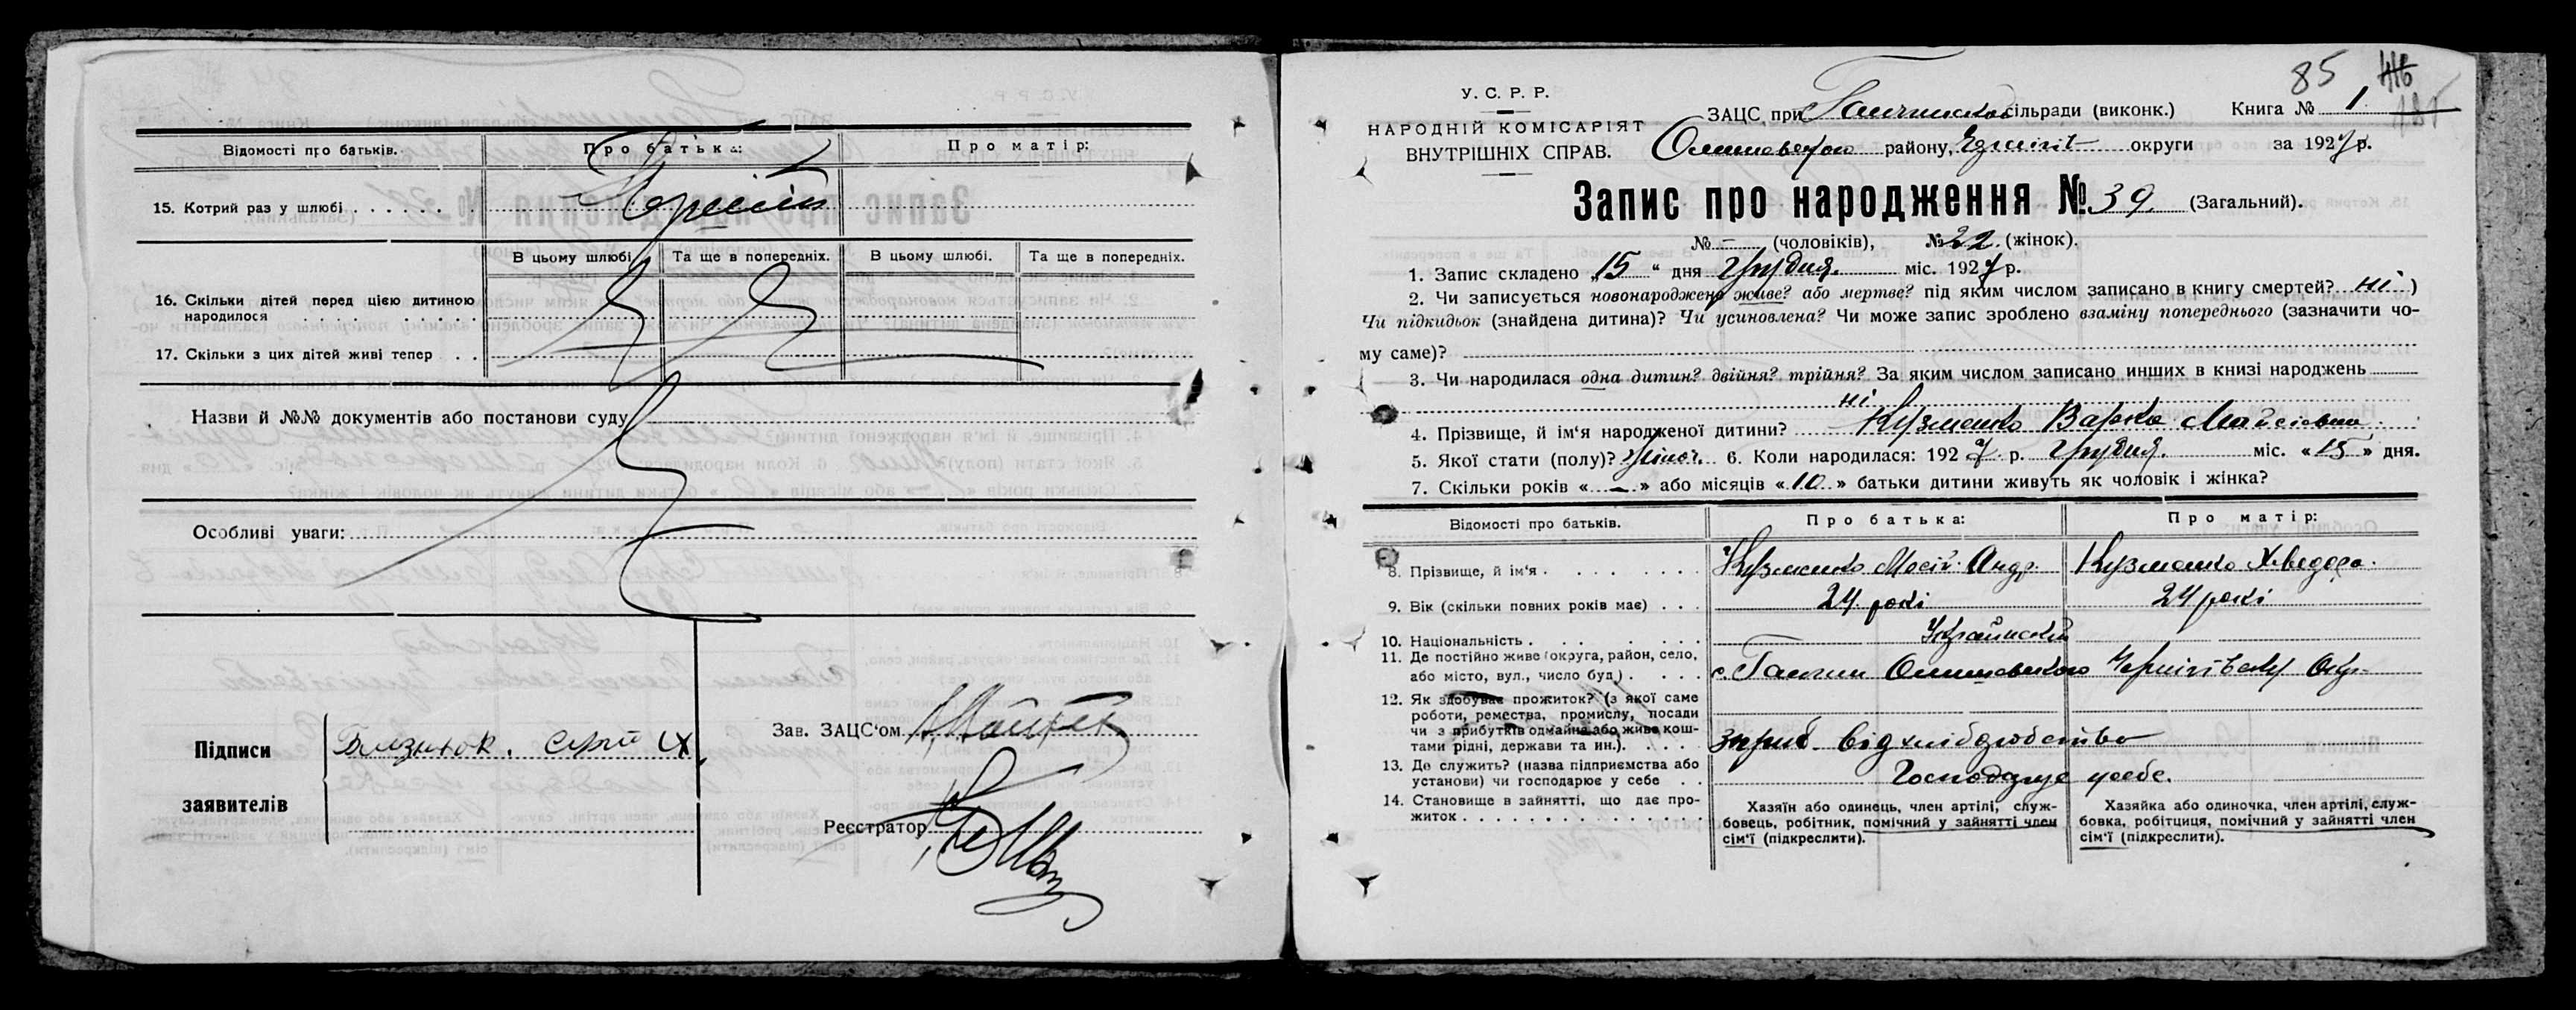 Відомості про батьків. Про батька: Про матір:
15. Котрий раз у шлюбі . . . . . . .
В цьому шлюбі. Та ще в попередніх. В цьому шлюбі. Та ще в попередніх.
16. Скільки дітей перед цією дитиною
народилося . . . . . . . . .
17. Скільки з цих дітей живі тепер . .
Назви й №№ документів або постанови суду
Особливі уваги:
Підписи
заявителів
Близнюк. Сергій
Зав. ЗАЦС'ом
Реєстратор
85
У. С. Р. Р.
НАРОДНІЙ КОМІСАРІЯТ
ВНУТРІШНІХ СПРАВ.
ЗАЦС при сільради (виконк.) Книга № 1
Олишовського району, округи за 1927 р.
Запис про народження № 39 (Загальний).
№ – (чоловіків), № 22. (жінок).
1. Запис складено „15“ дня Грудня. міс. 1927 р.
2. Чи записується новонароджене живе? або мертве? під яким числом записано в книгу смертей? ні )
Чи підкидьок (знайдена дитина)? Чи усиновлена? Чи може запис зроблено взаміну попереднього (зазначити чо-
му саме)?
3. Чи народилася одна дитин? двійня? трійня? За яким числом записано инших в книзі народжень
ні
4. Прізвище, й ім'я народженої дитини? Кузменко Варка
5. Якої стати (полу)? жіноч. 6. Коли народилася: 1927 р. Грудня. міс. «15» дня.
7. Скільки років « – » або місяців «10» батьки дитини живуть як чоловік і жінка?
Відомості про батьків. Про батька: Про матір:
8. Прізвище, й ім'я . . . . . . . Кузменко Мосій Андр. Кузменко Хведора.
9. Вік (скільки повних років має) . . . 24 рокі 24 рокі
10. Національність . . . . . . . Українській
11. Де постійно живе (округа, район, село,
або місто, вул., число буд) . . . . с. Олишовського Чернігівську Окр.
12. Як здобуває прожиток? (з якої саме
роботи, ремества, промислу, посади
чи з прибутків одмайна або живе кош-
тами рідні, держави та ин.). . . . . від хліборобства
13. Де служить? (назва підприємства або
установи) чи господарює у себе . . Господарує усебе.
14. Становище в зайнятті, що дає про-
житок . . . . . . . . . . . . . . .
Хазяїн або одинець, член артілі, служ-
бовець, робітник, помічний у зайнятті член
сім'ї (підкреслити).
Хазяйка або одиночка, член артілі, служ-
бовка, робітниця, помічний у зайнятті член
сім'ї (підкреслити).